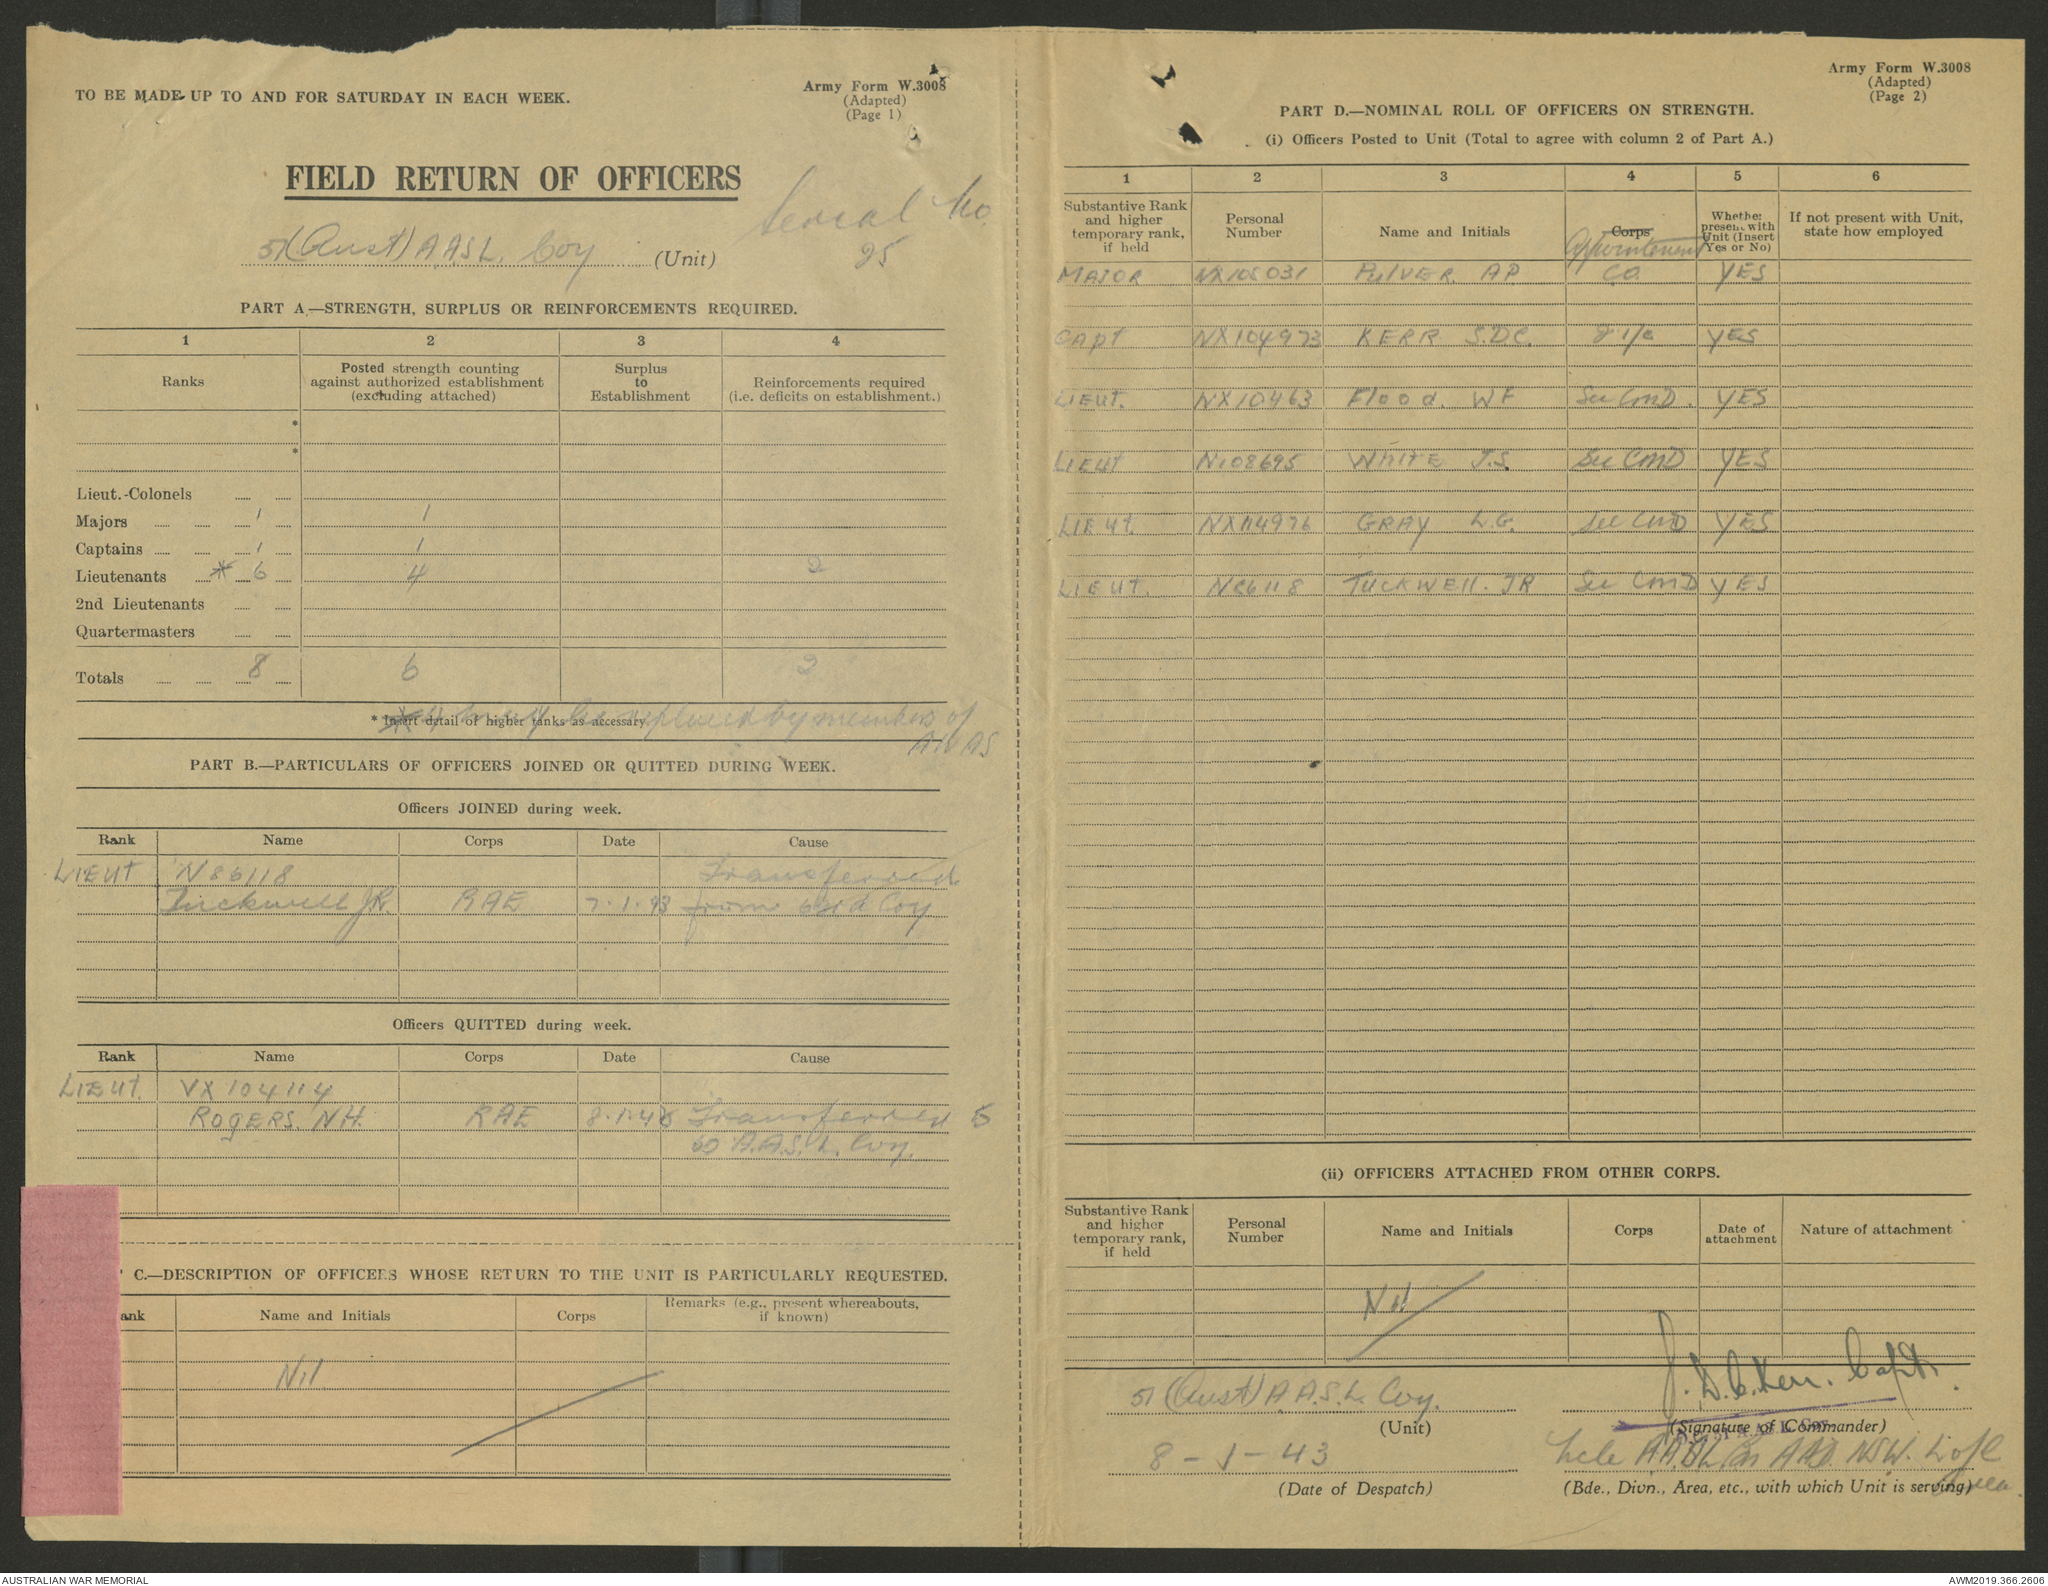 TO BE MADE UP TO AND FOR SATURDAY IN EACH WEEK.
Army Form W.3008
(Adapted)
(Page 1)
FIELD RETURN OF OFFICERS
Serial No.
25
51 (Aust) A.A.S.L. Coy (Unit)
PART A.—STRENGTH, SURPLUS OR REINFORCEMENTS REQUIRED.
1 2 3 4
Ranks
Posted strength counting against authorized establishment (excluding attached)
Surplus to Establishment
Reinforcements required (i.e. deficits on establishment.)
*
*
Lieut.-Colonels
Majors 1 1
Captains 1 1
Lieutenants * 6 4 2
2nd Lieutenants
Quartermasters
Totals 8 6 2
* Insert detail of higher ranks as accessary
* 4 may be replaced by members of
A.W.A.S
PART B.—PARTICULARS OF OFFICERS JOINED OR QUITTED DURING WEEK.
Officers JOINED during week.
Rank Name Corps Date Cause
LIEUT N86118 Transferred
Tuckwell J.R. RAE 7.1.43 from 63rd Coy
Officers QUITTED during week.
Rank Name Corps Date Cause
LIEUT. VX104114
ROGERS. N.H. RAE 8.1.43 Transferred
60 A.A.S.L. Coy.
C.—DESCRIPTION OF OFFICERS WHOSE RETURN TO THE UNIT IS PARTICULARLY REQUESTED.
ank Name and Initials Corps Remarks (e.g., present whereabouts, if known)
Nil
Army Form W.3008
(Adapted)
(Page 2)
PART D.—NOMINAL ROLL OF OFFICERS ON STRENGTH.
(i) Officers Posted to Unit (Total to agree with column 2 of Part A.)
1 2 3 4 5 6
Substantive Rank and higher temporary rank, if held
Personal Number
Name and Initials
Corps
Appointment
Whether present with Unit (Insert Yes or No)
If not present with Unit, state how employed
MAJOR NX105031 PULVER. A.P. C.O. YES
CAPT NX104973 KERR S.D.C. 2 i/c YES
LIEUT. NX10463 Flood. W F Sec Cmd. YES
LIEUT N108695 WHITE J.S. Sec CMD YES
LIEUT. NX114976 GRAY L.G. Sec CMD YES
LIEUT. N86118 TUCKWELL. JR Sec CMD YES
(ii) OFFICERS ATTACHED FROM OTHER CORPS.
Substantive Rank and higher temporary rank, if held
Personal Number
Name and Initials
Corps
Date of attachment
Nature of attachment
Nil
51 (Aust) A.A.S.L. Coy.
(Unit)
S.D.C. Kerr. Capt.
(Signature of Commander)
8 - 1 - 43
(Date of Despatch)
NSW. L of C
Area.
(Bde., Divn., Area, etc., with which Unit is serving)
AUSTRALIAN WAR MEMORIAL
AWM2019.366.2606